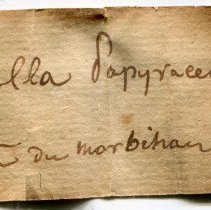 ella Papyracea
du morbihan